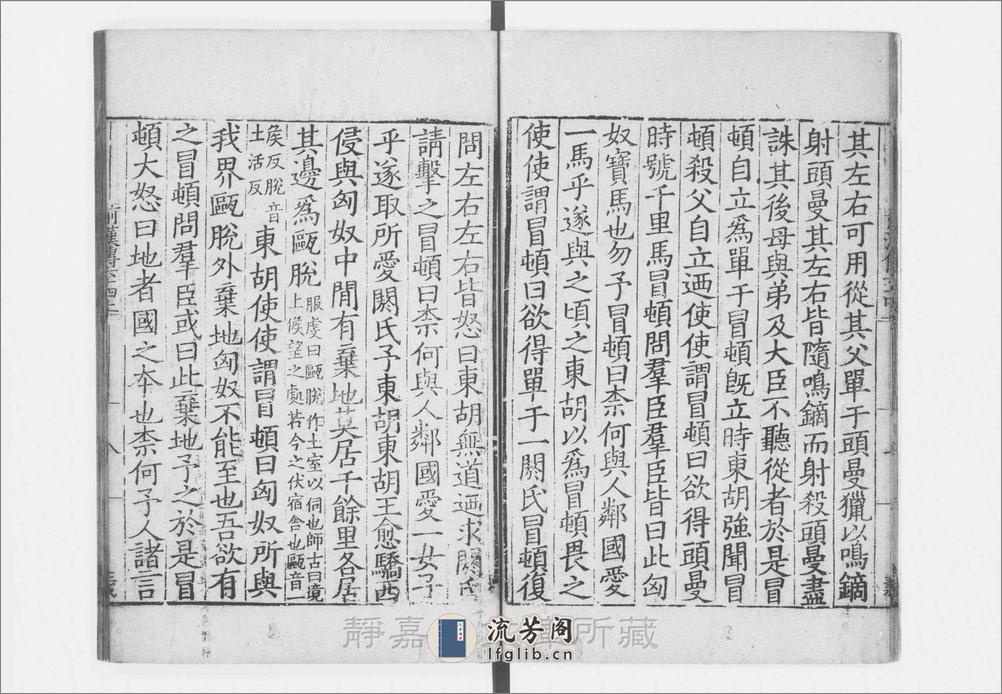 其左右可用從其父單于頭曼獵以鳴鏑
射頭曼其左右皆隨鳴鏑而射殺頭曼盡
誅其後母與弟及大臣不聽從者於是冒
頓自立爲單于冒頓旣立時東胡強聞冒
頓殺父自立迺使使謂冒頓曰欲得頭曼
時號千里馬冒頓問羣臣羣臣皆曰此匈
奴寶馬也勿予冒頓曰柰何與人鄰國愛
一馬乎遂與之頃之東胡以爲冒頓畏之
使使謂冒頓曰欲得單于一閼氏冒頓復
問左右左右皆怒曰東胡無道迺求閼氏
請擊之冒頓曰柰何與人鄰國愛一女子
乎遂取所愛閼氏予東胡東胡王愈驕西
侵與匈奴中閒有棄地莫居千餘里各居
其邊爲甌脫
服虔曰甌脫作土室以伺也師古曰境
上候望之處若今之伏宿舍也甌音一
侯反脫音
土活反
東胡使使謂冒頓曰匈奴所與
我界甌脫外棄地匈奴不能至也吾欲有
之冒頓問羣臣或曰此棄地予之於是冒
頓大怒曰地者國之夲也柰何予人諸言
前漢傳六十四上
八
靜嘉
所藏
流芳阁
lfglib.cn